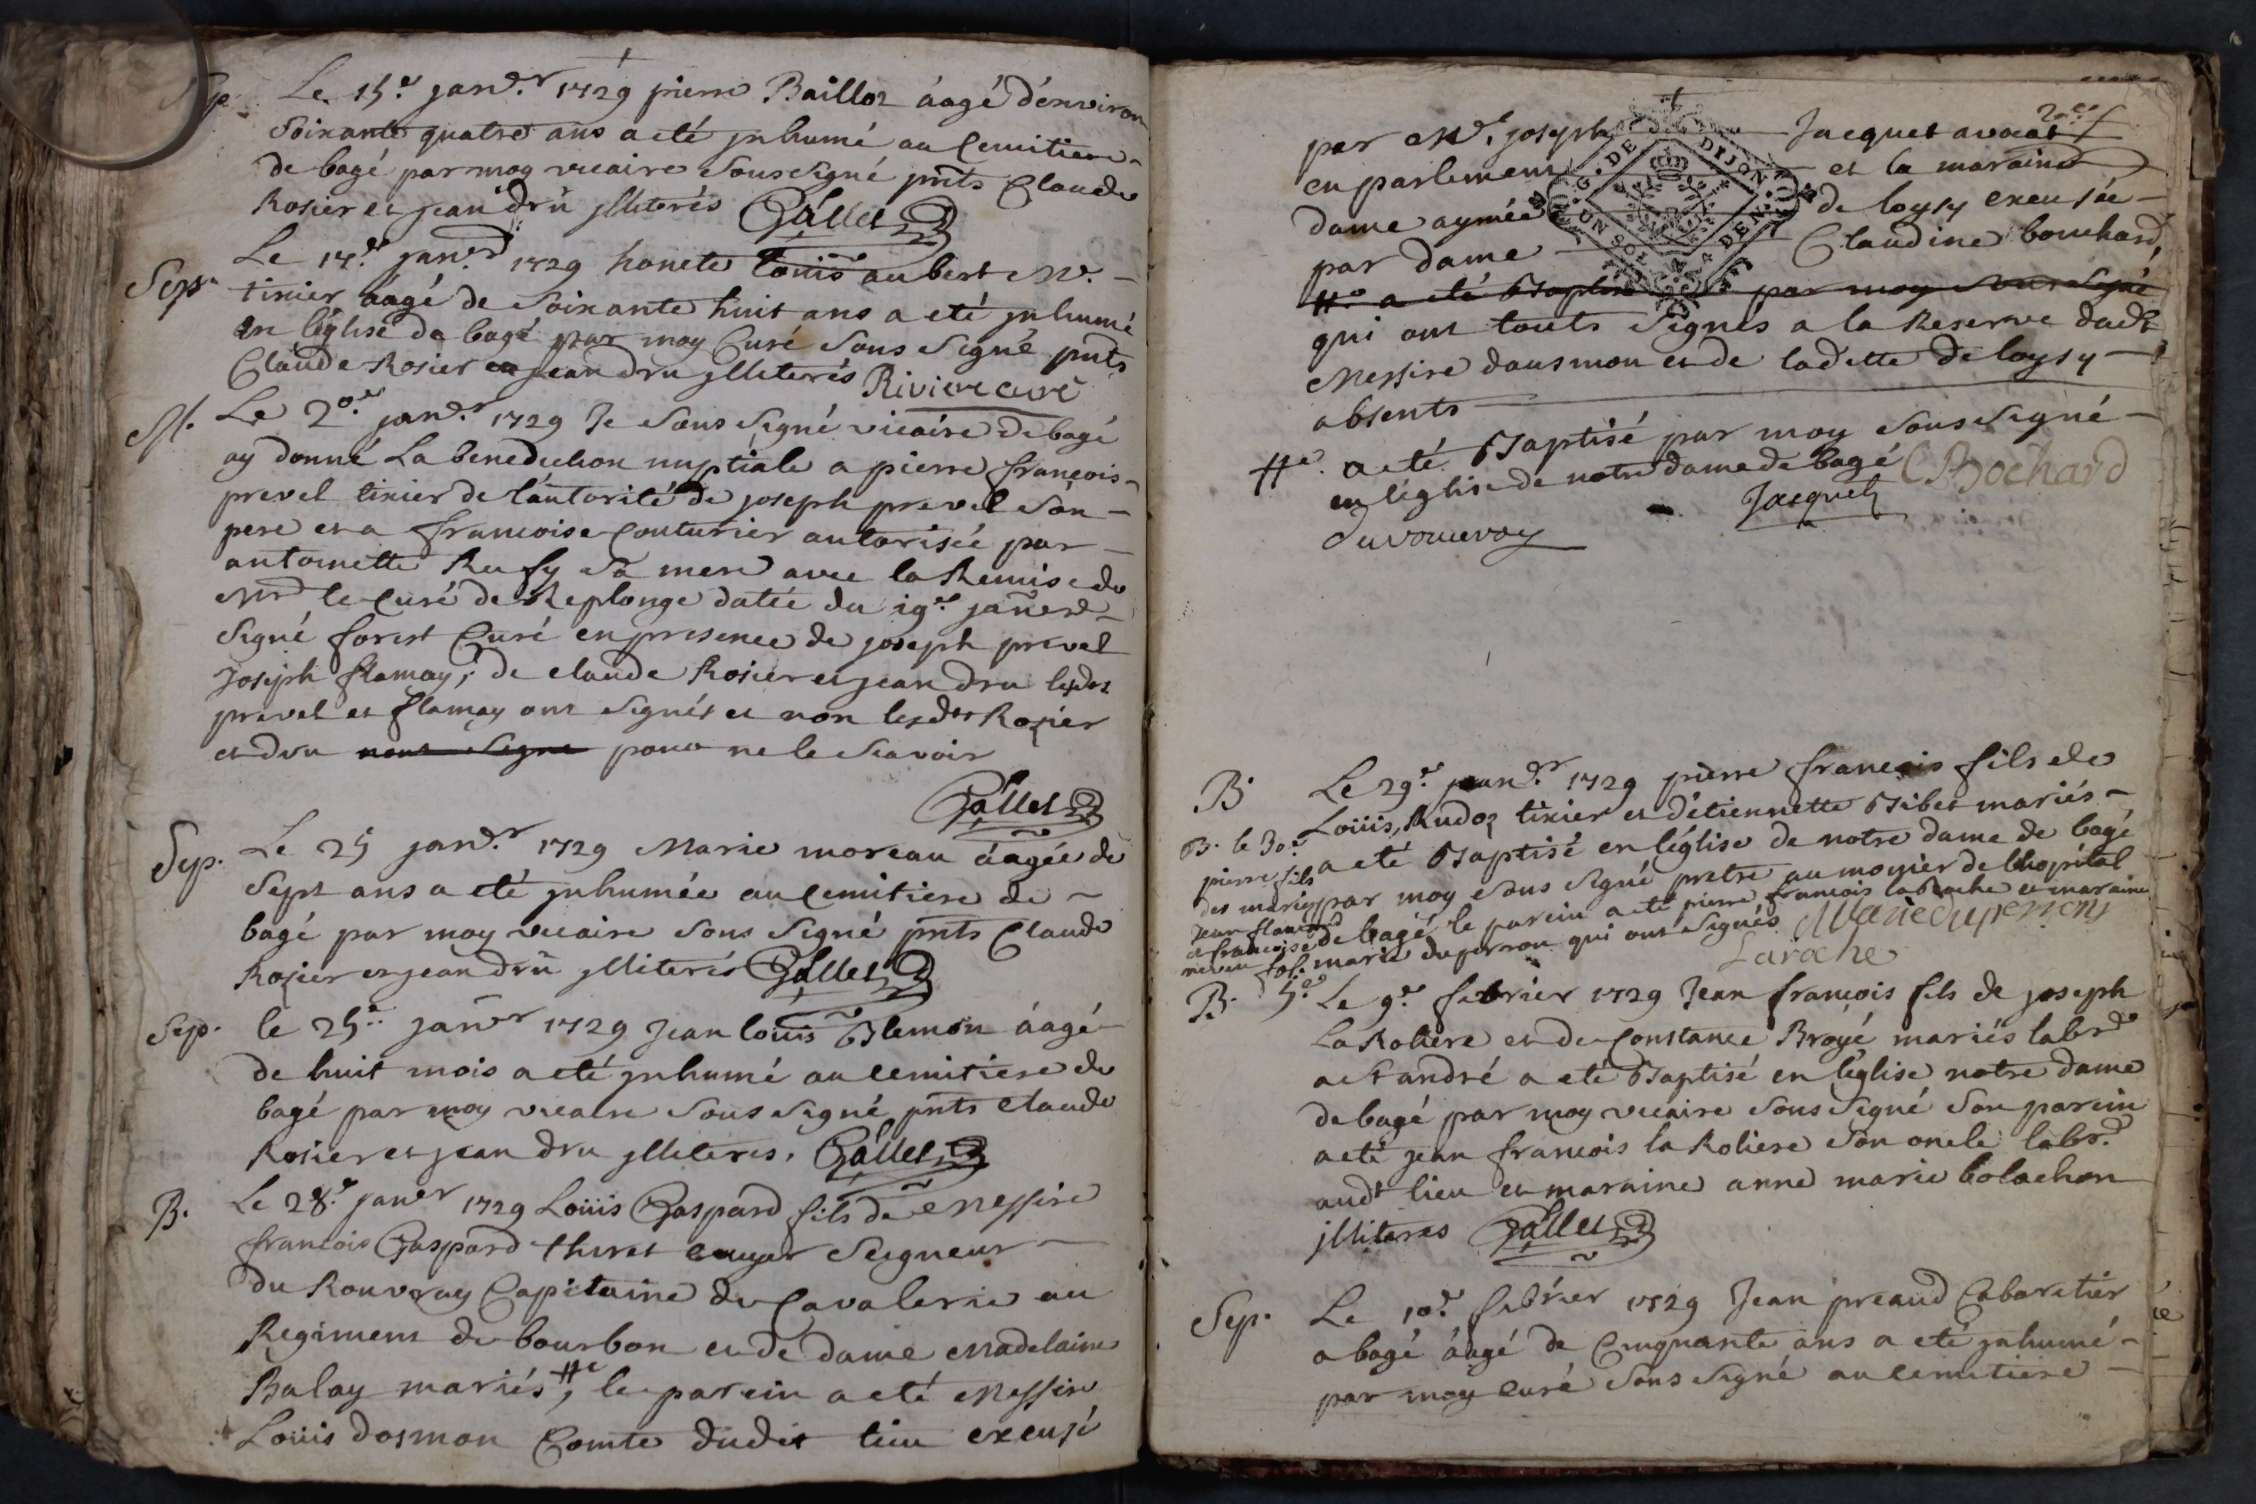 Sep. Le 15.e janv.r 1729 pierre Bailloz áagé d'environ
Soixante quatre ans a eté jnhumé au Cemitiere
de bagé par moy vicaire Sous Signé pnts Claude
Rosier et jean drû jlliterés Gallet
Sep.r Le 17.e janv.r 1729 honete Louis aubert M.e
tixier áagé de Soixante huit ans a eté jnhumé
en l'église de bagé par moy Curé Sous Signé pnts
Claude Rosier et jean dru jlliterés Riviere curé
M. Le 20.e janv.r 1729 Je Sous Signé vicaire de bagé
ay donné La benediction nuptiale a pierre françois
prevel tixier de l'autorité de joseph prevel Son
pere et a francoise Couturier autorisée par
antoinette Rufy Sa mere avec la Remise de
Mr le Curé de Replonge datée du 19.e janv.r
Signé forest Curé en presence de joseph prevel
Joseph flamay, de claude Rosier et jean dru lesdts
prevel et flamay ont Signés et non lesdts Rosier
et dru nont Signe pour ne le Scavoir
Gallet
Sep. Le 25 janv.r 1729 Marie moreau áagée de
Sept ans a eté jnhumée au Cemitiere de
bagé par moy vicaire Sous Signé pnts Claude
Rosier et jean drû jlliterés Gallet
Sep. le 25.e janv.r 1729 Jean louis Blemon áagé
de huit mois a eté jnhumé au cemitiere de
bagé par moy vicaire Sous Signé pnts claude
Rosier et jean dru jlliteres. Gallet
B. Le 28.e janv.r 1729 Loüis Gaspard fils de Messire
francois Gaspard thiret Ecuyer Seigneur
du Rouvray Capitaine de Cavalerie au
Regiment de bourbon et de dame Madelaine
Balay mariés #e, le parein a eté Messire
Loüis dosmon Comte dudit lieu excusé
par M.e joseph Jacquet avocat
en parlement et la maraine
dame aymée de loysy excusée
par dame Claudine bouchard
G. DE DIJON
UN SOL 4 DEN.
#e a eté Baptisé par moy Sous Signé
qui ont touts Signés a la Reserve dudt
Messire dausmon et de ladette de loysy
absents
#e. a eté Baptisé par moy Sous Signé
en l'église de notre dame de bagé CBochard
Jacquet
du rouvray
B. Le 29.e janv.r 1729 pierre francois fils de
Loüis Rudoz tixier et d'étiennette Bibet mariés
a eté Baptisé en l'église de notre dame de bagé
par moy Sous Signé pretre aumonier de l'hopital
de bagé, le parein a eté pierre francois laRoche et maraine
marie duperron qui ont Signés Marie duperron
Laroche
B. le 30.e
pierre fils
des mariés
jean flamand
et francoise
neveu fol.
5.e
B. Le 9.e febrier 1729 Jean francois fils de joseph
La Roliere et de Constance Broyé mariés labrd
a St andré a eté Baptisé en l'église notre dame
de bagé par moy vicaire Sous Signé Son parein
a eté jean francois la Roliere Son oncle labrd
audt lieu et maraine anne marie bolachon
jlliteres Gallet
Sep. Le 10.e febrier 1729 Jean preaud Cabaretier
a bagé áagé de Cinquante ans a eté jnhumé
par moy curé Sous Signé au cemitiere